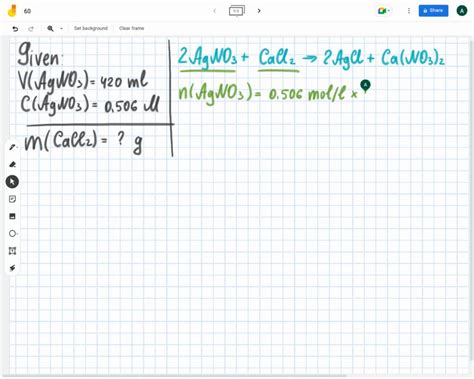 60
Share
A
Set background
Clear frame
Given:
V(AgNO₃) = 420 ml
C(AgNO₃) = 0.506 M
m(CaCl₂) = ? g
2AgNO₃ + CaCl₂ → 2AgCl + Ca(NO₃)₂
n(AgNO₃) = 0.506 mol/l ×
A